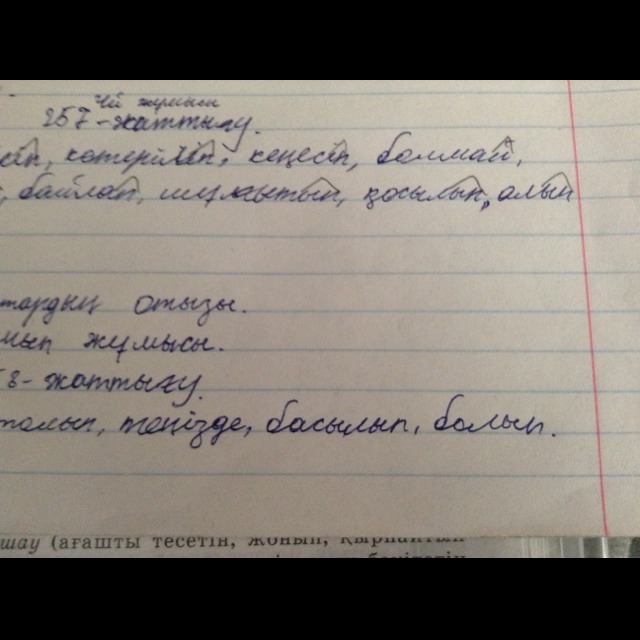 Үй жұмысы
257-жаттығу.
көтеріліп, кеңесіп, болмай,
байлап, шұлғытып, қосылып, алып
тардың отызы.
жұмысы.
8-жаттығу.
теңізде, басылып, болып.
шау (ағашты тесетін, жонып, қырнайтын